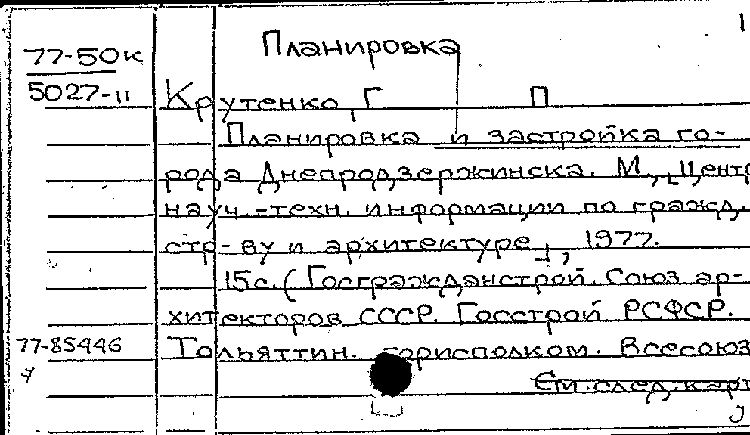 1
Планировка
77-50к
5027-11
Крутенко, Г П
Планировка и застройка го-
рода Днепродзержинска. М., [Центр
науч.-техн. информации по гражд.
стр-ву и архитектуре], 1977.
15с. (Госгражданстрой. Союз ар-
хитекторов СССР. Госстрой РСФСР.
77-85446
Тольяттин. горисполком. Всесоюз
См. след. карт